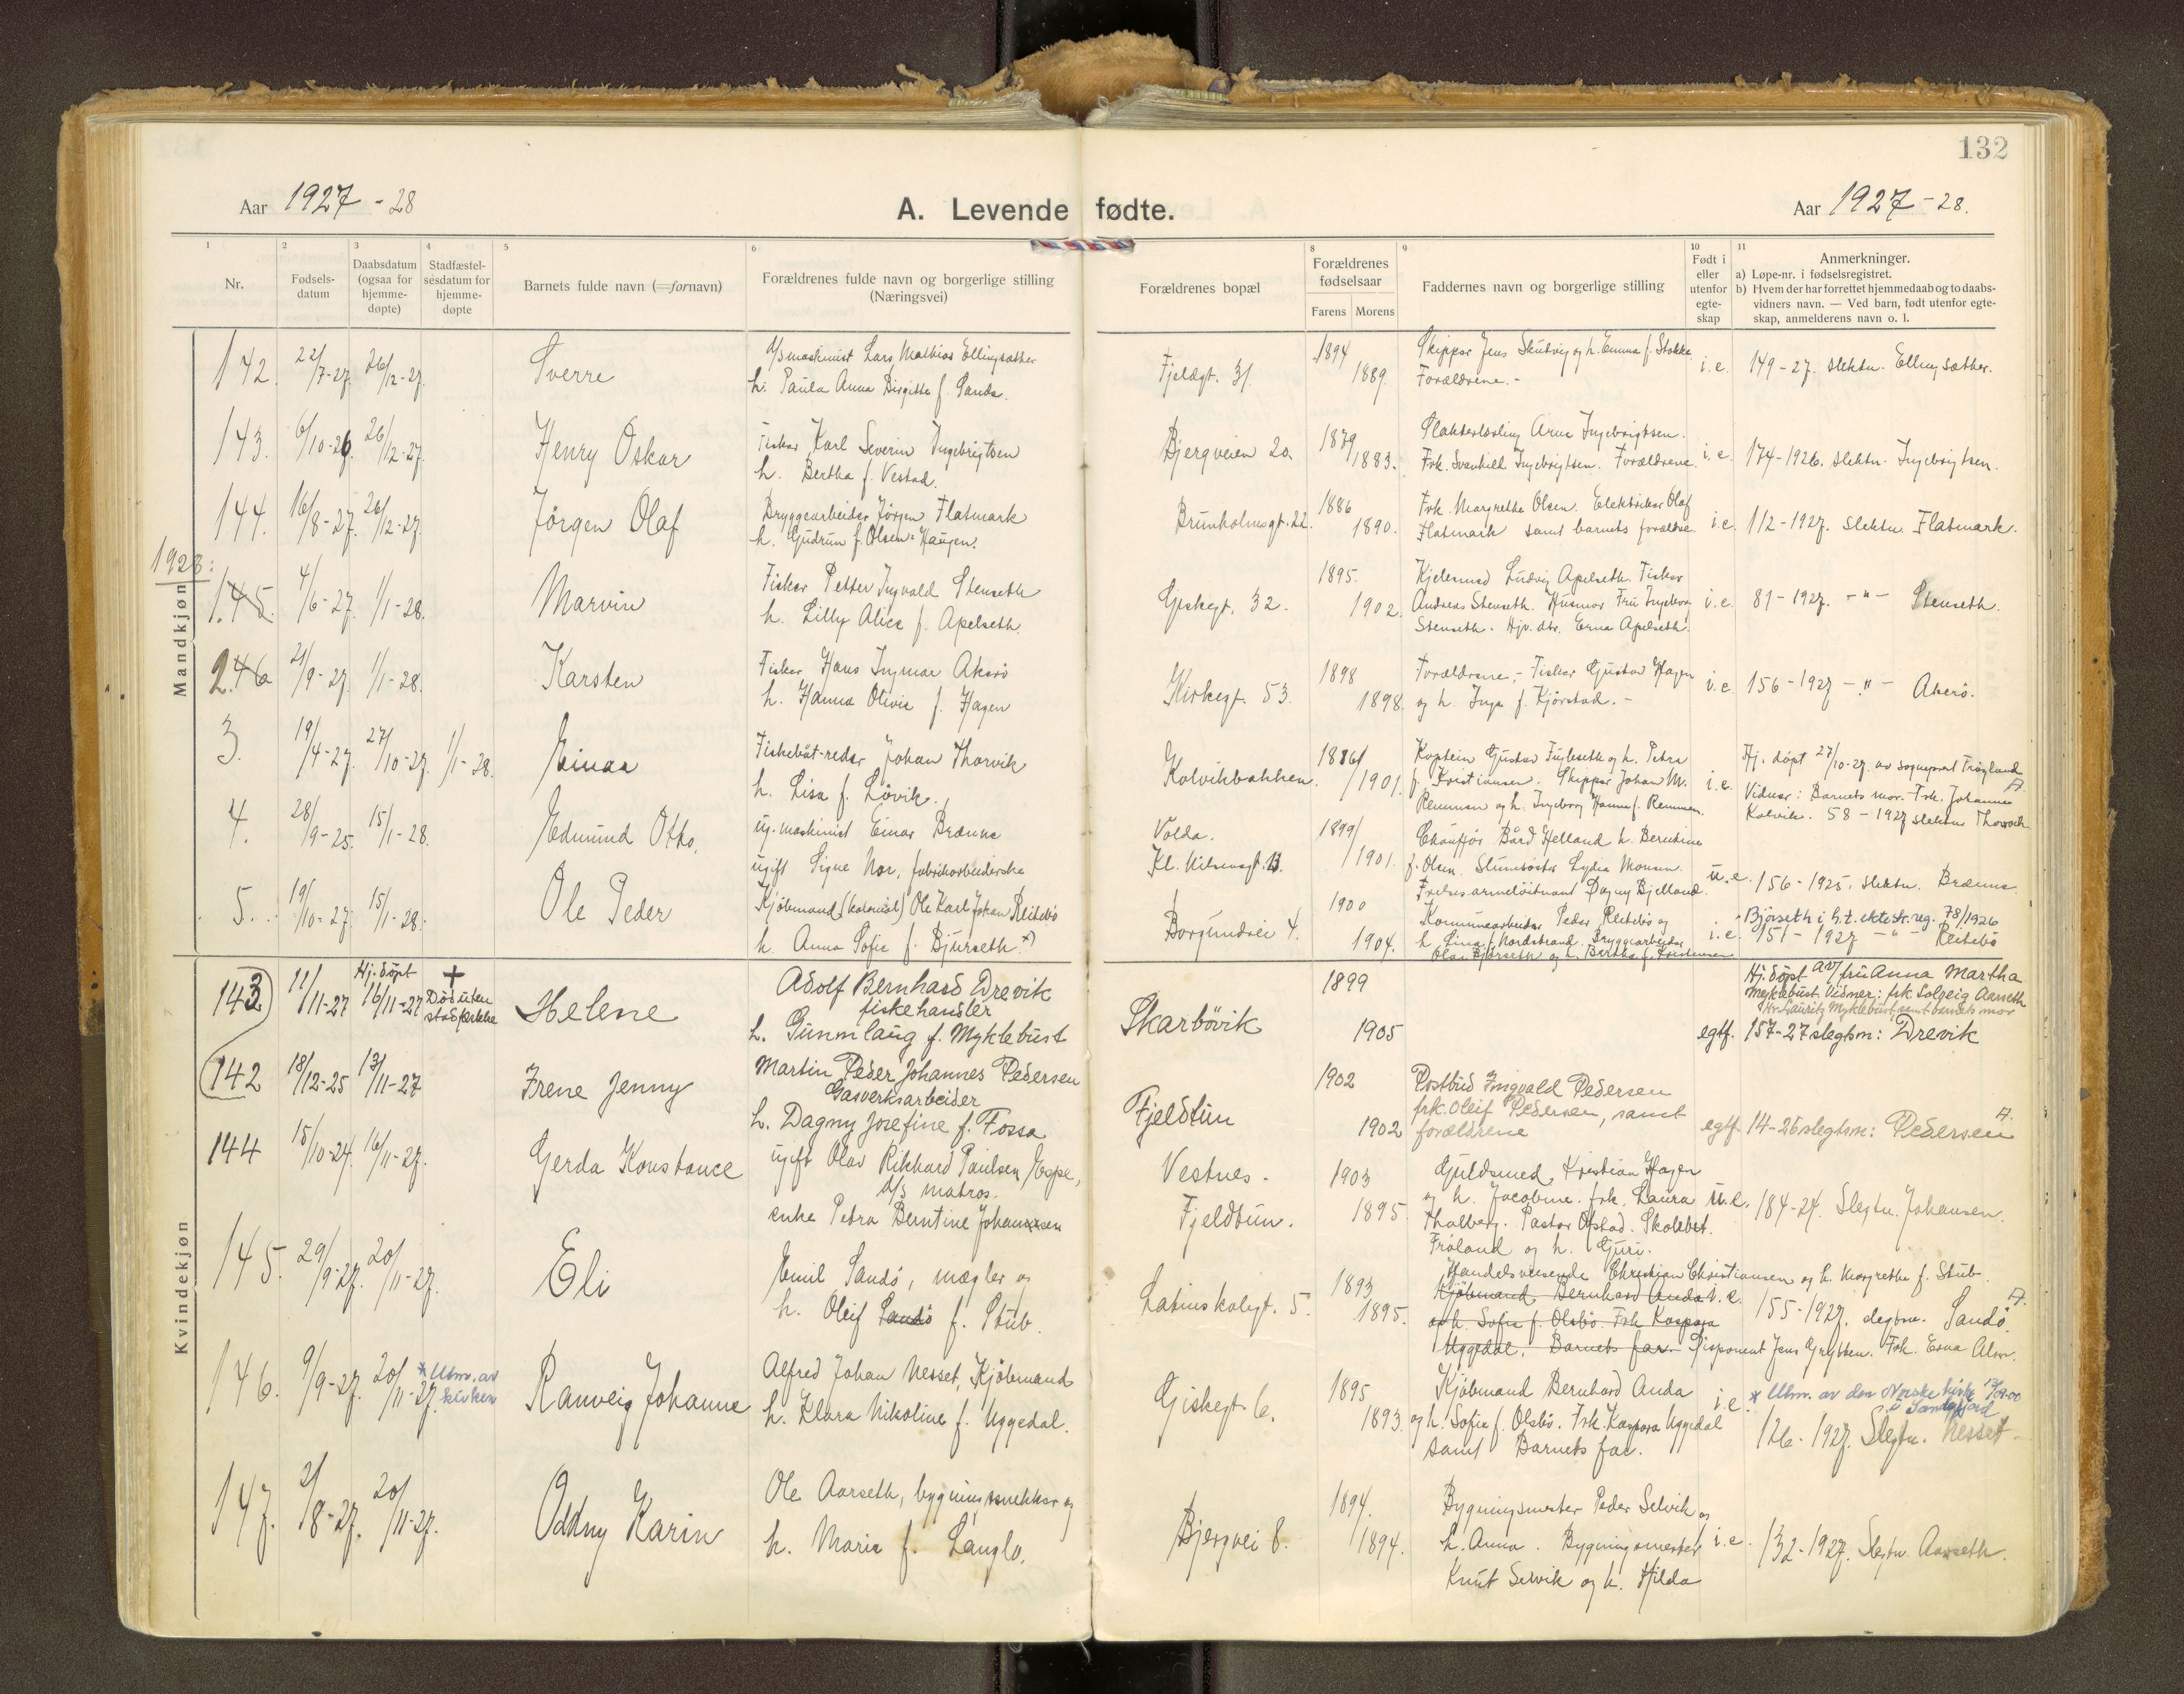 132
Aar 1927 - 28
A. Levende fødte.
Aar 1927 - 28.
1 2 3 4 5 6 8 9 10 11
Nr.
Fødsels-
datum
Daabsdatum
(ogsaa for
hjemme-
døpte)
Stadfæstel-
sesdatum for
hjemme-
døpte
Barnets fulde navn (=fornavn)
Forældrenes fulde navn og borgerlige stilling
(Næringsvei)
Forældrenes bopæl
Forældrenes
fødselsaar
Farens Morens
Faddernes navn og borgerlige stilling
Født i
eller
utenfor
egte-
skap
Anmerkninger.
a) Løpe-nr. i fødselsregistret.
b) Hvem der har forrettet hjemmedaab og to daabs-
vidners navn. — Ved barn, født utenfor egte-
skap, anmelderens navn o. l.
Mandkjøn
142. 22/7-27. 26/12-27. Sverre
d/s maskinist Lars Mathias Ellingsæther
h. Paula Anna Birgitte f. Sande.
Fjeldgt. 31. 1894 1889.
Skipper Jens Skutvig og h. Emma f. Stokke.
Forældrene.-
i.e. 149-27. slektn. Ellingsæther.
143. 6/10-26. 26/12-27. Henry Oskar
Fisker Karl Severin Ingebrigtsen
h. Bertha f. Vestad.
Bjergveien 20. 1879 1883.
Slakterlærling Arne Ingebrigtsen.
Frk. Svanhill Ingebrigtsen. Forældrene.
i.e. 174-1926. slektn. Ingebrigtsen.
144. 16/8-27. 26/12-27. Jørgen Olaf
Bryggearbeider Jørgen Flatmark
h. Gudrun f. Olsen-Haugen.
Brunholmsgt. 22. 1886 1890.
Frk. Margrethe Olsen. Elektriker Olaf
Flatmark samt barnets forældre
i.e. 112-1927. slektn. Flatmark.
1928:
1. 45. 4/6-27. 1/1-28. Marvin
Fisker Petter Ingvald Stenseth
h. Lilly Alice f. Apelseth.
Giskegt. 32. 1895. 1902.
Kjelesmed Ludvig Apelseth. Fisker
Andreas Stenseth. Husmor Fru Ingeborg
Stenseth. Hjv. dtr. Erna Apelseth.
i.e. 81-1927. -"- Stenseth.
2. 46 21/9-27. 1/1-28. Karsten
Fisker Hans Ingmar Akerø
h. Hanna Olivie f. Hagen
Kirkegt. 53. 1898 1898.
Forældrene,- Fisker Gustav Hagen
og h. Inga f. Kjørstad.-
i.e. 156-1927 -"- Akerø.
3. 19/4-27. 27/10-27. 1/1-28. Einar
Fiskebåt-reder Johan Thorvik
h. Lisa f. Løvik.
Kolvikbakken. 1886 1901.
Kaptein Gustav Fugleseth og h. Petra
f. Kristiansen. Skipper Johan M.
Remmen og h. Ingeborg Hanna f. Remmen.
i.e.
Hj. døpt 27/10-27. av sogneprest Frøyland
Vidner: Barnets mor. Frk. Johanne
Kolvik. 58-1927 slektn. Thorvik
4. 28/9-25. 15/1-28. Edmund Otto.
ug. maskinist Einar Brænne
ugift Signe Nor, fabrikarbeiderske
Volda.
Kl. Nilsensgt. 13. 1899/ 1901.
Chauffør Bård Helland h. Berntine
f. Olsen. Slumsøster Lydia Monsen.
Frelsesarmeløitnant Dagny Bjelland.
u.e. 156-1925. slektn. Brænne
5. 19/10-27. 15/1-28. Ole Peder
Kjøbmand (kolonial) Ole Karl Johan Reitebø
h. Anna Sofie f. Bjørseth. x)
Borgundvei 4. 1900 1904.
Kommunearbeider Peder Reitebø og
h. Lina f. Nordstrand. Bryggearbeider
Olav Bjørseth og h. Bertha f. Kristensen
i.e. Bjørseth i h.t. ektesk.reg. 78/1926
151-1927 -"- Reitebø
Kvindekjøn
143 11/11-27 Hj. døpt 16/11-27 + Død uten stadfæstelse Helene
Adolf Bernhard Drevik
fiskehandler
h. Gunnlaug f. Myklebust
Skarbøvik 1899 1905
egtf.
Hj. døpt av fru Anna Martha
Myklebust. Vidner: frk Solveig Aarseth
Hr. Lauritz Myklebust, samt barnets mor
157-27 slegtsn: Drevik
142 18/12-25 13/11-27 Irene Jenny
Martin Peder Johannes Pedersen
Gasverksarbeider
h. Dagny Josefine f. Fossa
Fjeldtun 1902 1902
Postbud Ingvald Pedersen
frk. Oleif Pedersen, samt
forældrene
egtf. 14-26 slegtsn: Pedersen
144 15/10-24. 16/11-27. Gerda Konstance
ugift Olav Rikhard Paulsen Espe,
d/s matros.
enke Petra Berntine Johansen
Vestnes.
Fjeldtun. 1903 1895.
Guldsmed Kristian Hagen
og h. Jacobine. frk. Laura
Thalberg. Pastor Ofstad. Skolebest.
Frøland og h. Guri.
u.e. 184-24. Slegtn. Johansen.
145. 29/9-27. 20/11-27. Eli
Emil Sandø, mægler og
h. Oleif Sandø f. Stub.
Latinskolegt. 5. 1893 1895.
Handelsreisende Christian Christiansen og h. Margrethe f. Stub.
Kjøbmand Bernhard Anda i.e.
og h. Sofie f. Olsbø. Frk Kaspara
Uggedal. Barnets far. Disponent Jens Grytten. Frk. Erna Alm.
155-1927. slegtsn. Sandø.
146. 9/9-27. 20/11-27. * Utm. av kirken Ranveig Johanne
Alfred Johan Nesset, Kjøbmand
h. Klara Nikoline f. Uggedal.
Giskegt. 6. 1895 1893
Kjøbmand Bernhard Anda
og h. Sofie f. Olsbø. Frk. Kaspara Uggedal
samt Barnets far.
i.e. * Utm. av den Norske kirke
i Sandefjord
126-1927. Slegtn. Nesset.
147. 2/8-27. 20/11-27. Oddny Karin
Ole Aarseth, bygningssnekker og
h. Marie f. Langlo.
Bjergvei 8. 1894. 1894.
Bygningsmester Peder Selvik og
h. Anna. Bygningsmester
Knut Selvik og h. Hilda
i.e. 132-1927. Slegtn. Aarseth.